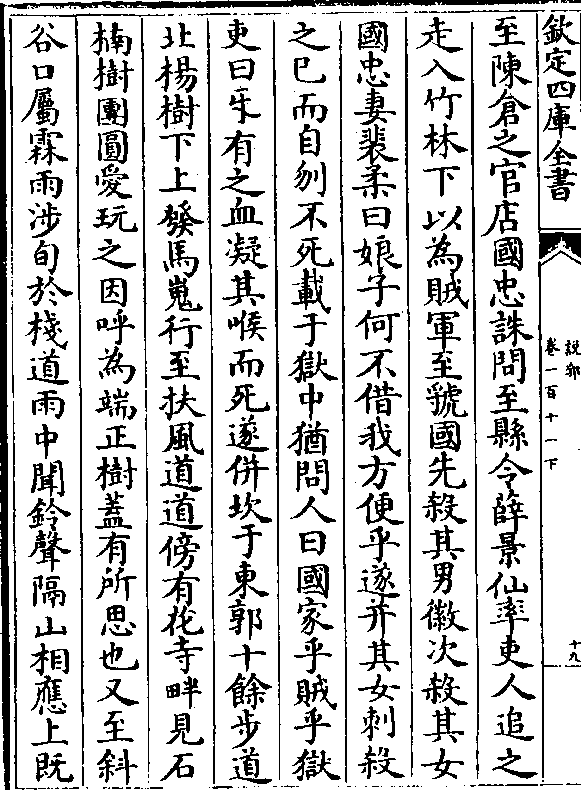 欽定四庫全書
說郛
卷一百十一下
十九
至陳倉之官店國忠誅問至縣令薛景仙率吏人追之
走入竹林下以為賊軍至虢國先殺其男徽次殺其女
國忠妻裴柔曰娘子何不借我方便乎遂并其女刺殺
之已而自刎不死載于獄中猶問人曰國家乎賊乎獄
吏曰互有之血凝其喉而死遂併坎于東郭十餘步道
北楊樹下上發馬嵬行至扶風道道傍有花寺畔見石
楠樹團圓愛玩之因呼為端正樹蓋有所思也又至斜
谷口屬霖雨涉旬於棧道雨中聞鈴聲隔山相應上既